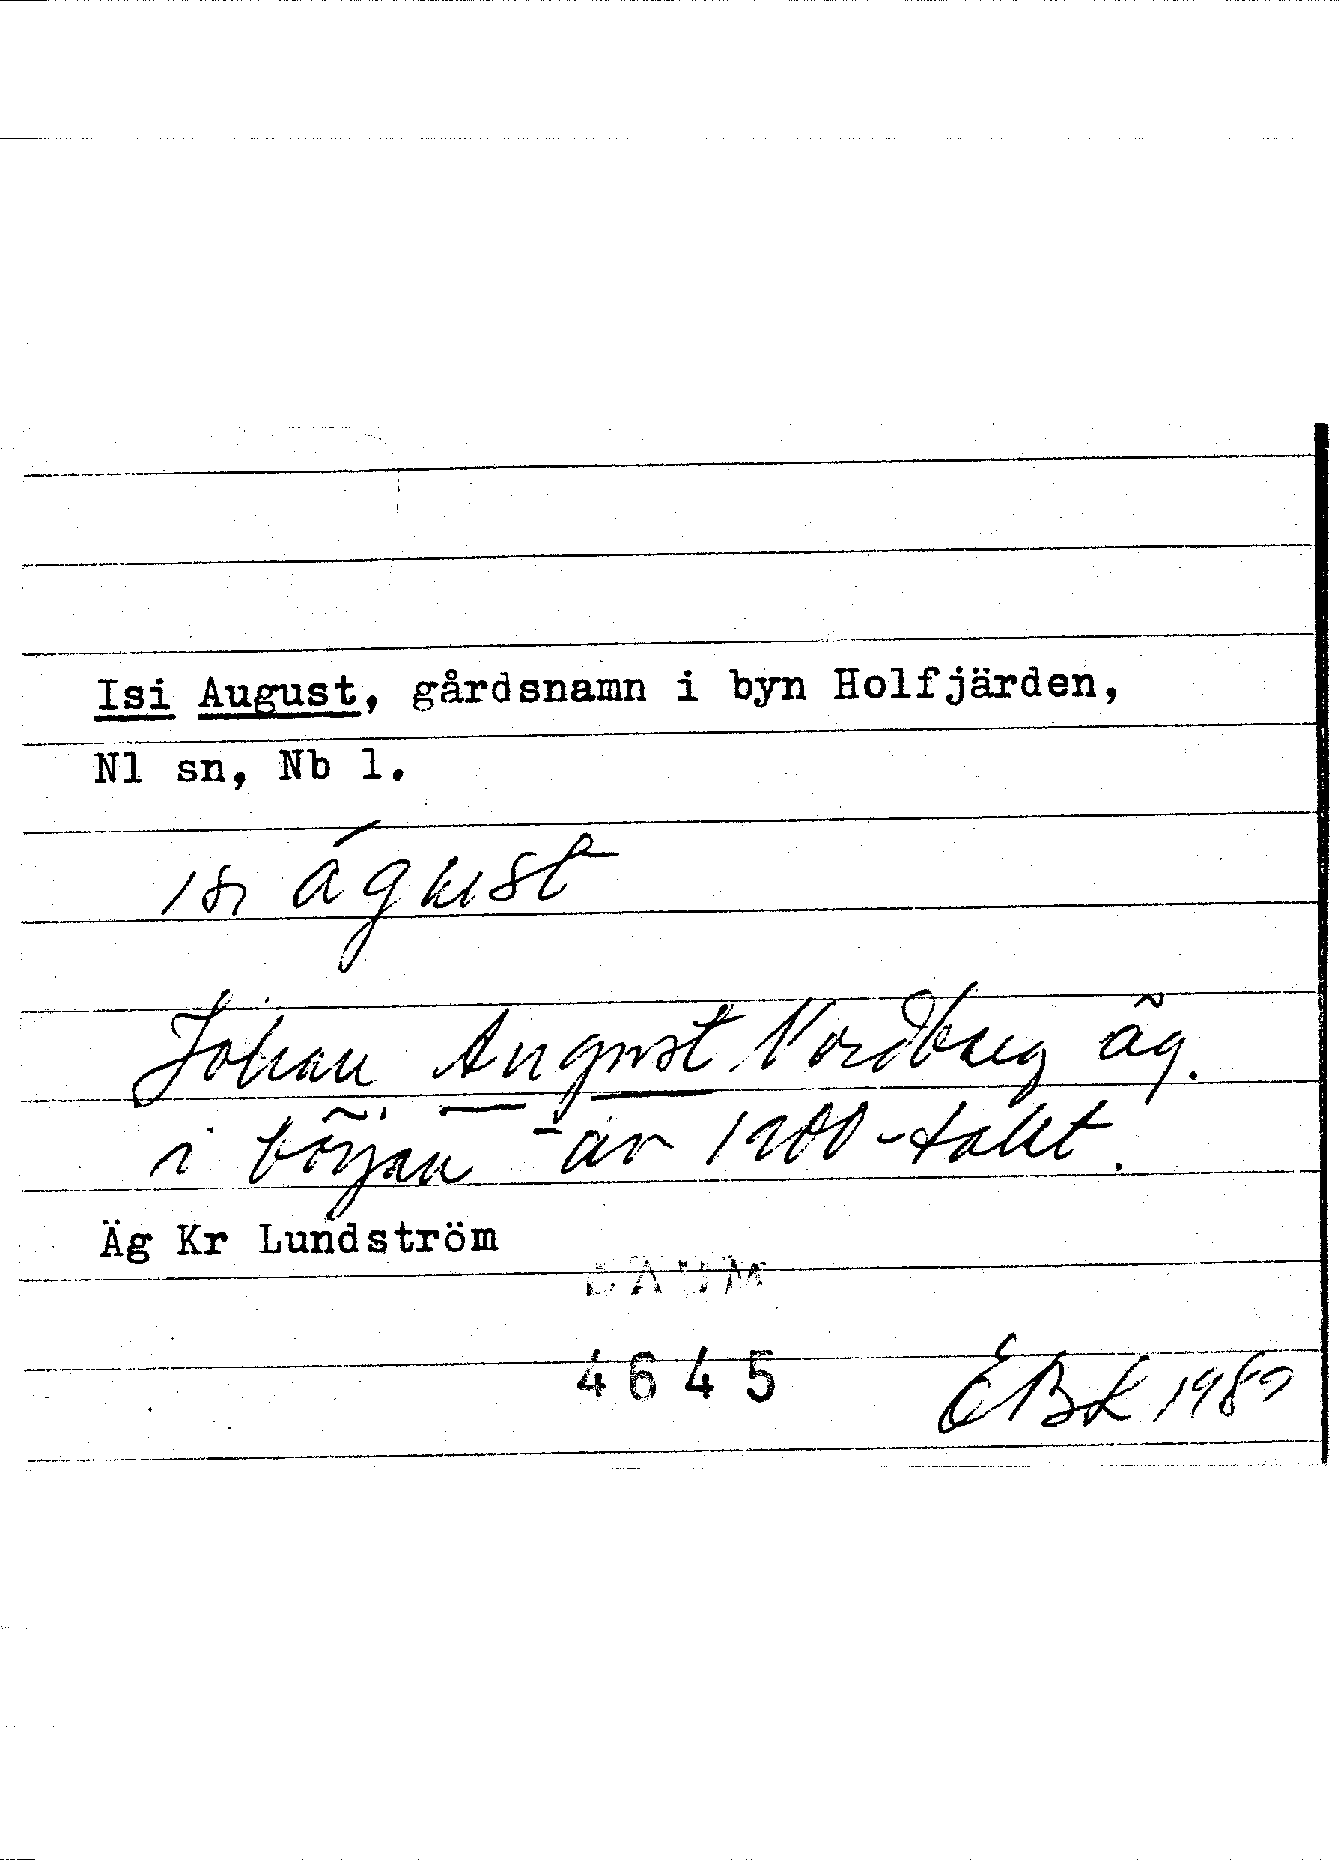 Isi August, gårdsnamn i byn Holfjärden,
Nl sn, Nb l.
isi águst
Johan August Nordberg äg.
i början av 1900-talet.
Äg Kr Lundström
DAUM
4645
EBK 1980